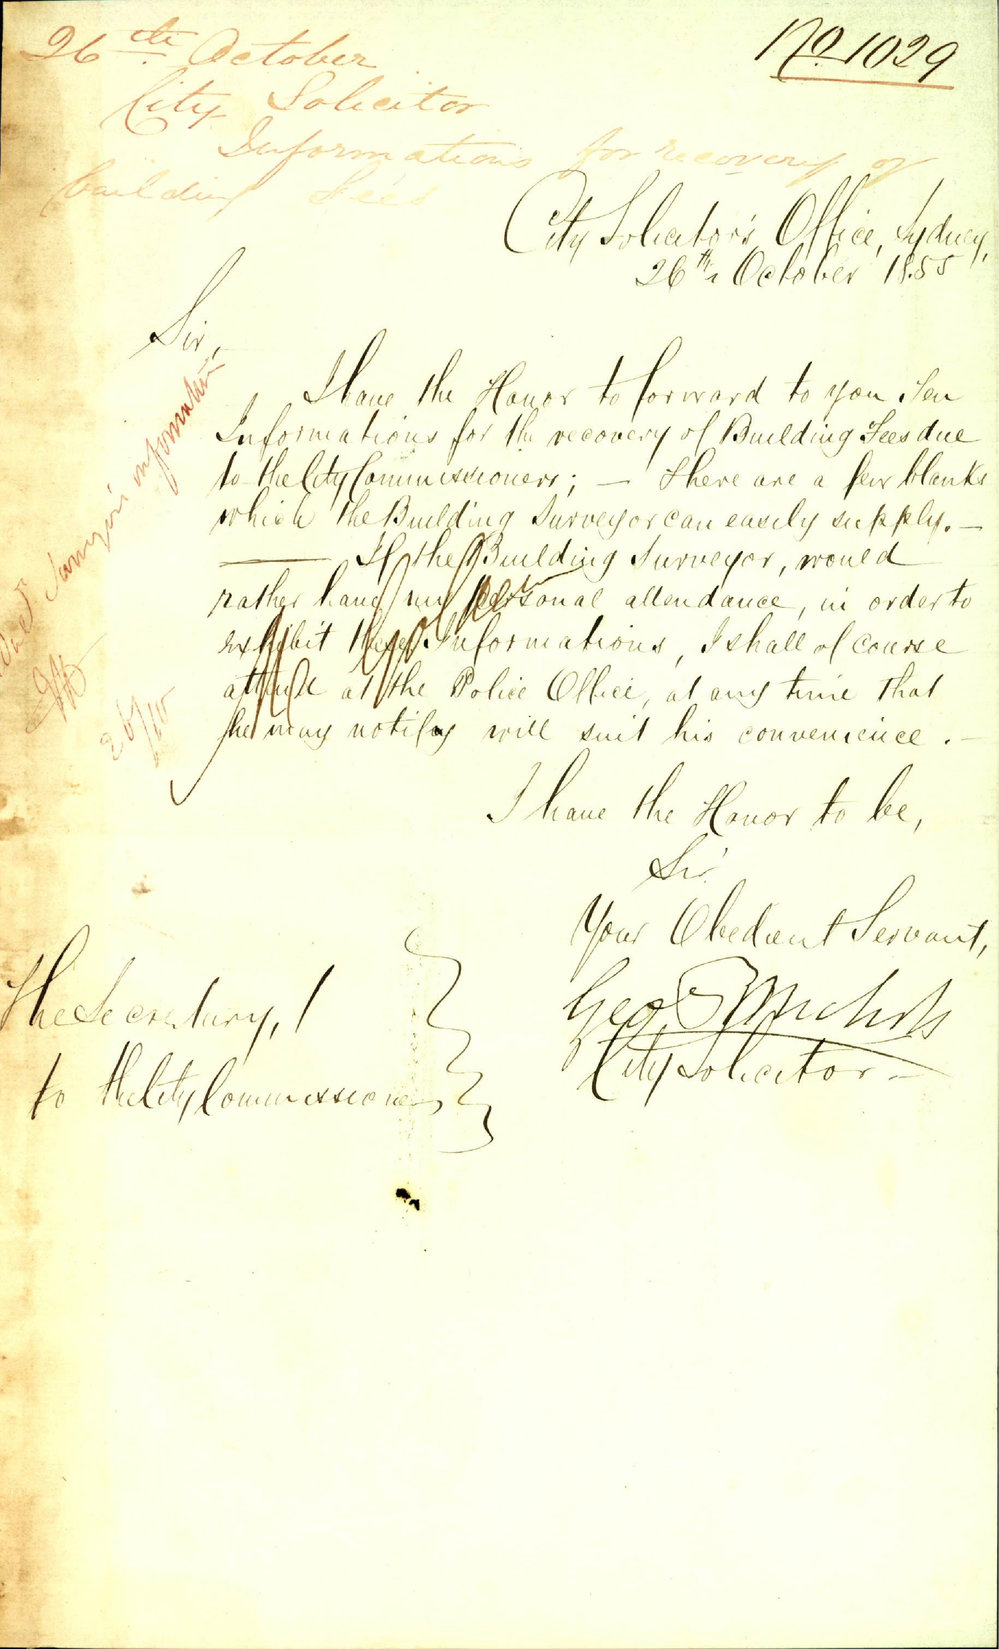 26th October
No. 1029
City Solicitor
Informations for recovery of
building fees
City Solicitor's Office, Sydney,
26th October 1855
Sir,
I have the Honor to forward to you Ten
Informations for the recovery of Building Fees due
to the City Commissioners; — There are a few blanks
which the Building Surveyor can easily supply. —
— If the Building Surveyor, would
rather have my personal attendance, in order to
exhibit these Informations, I shall of course
attend at the Police Office, at any time that
he may notify will suit his convenience. —
I have the Honor to be,
Sir
Your Obedient Servant,
Geo
City Solicitor —
The Secretary,
to the City Commissioners
informations
26/10